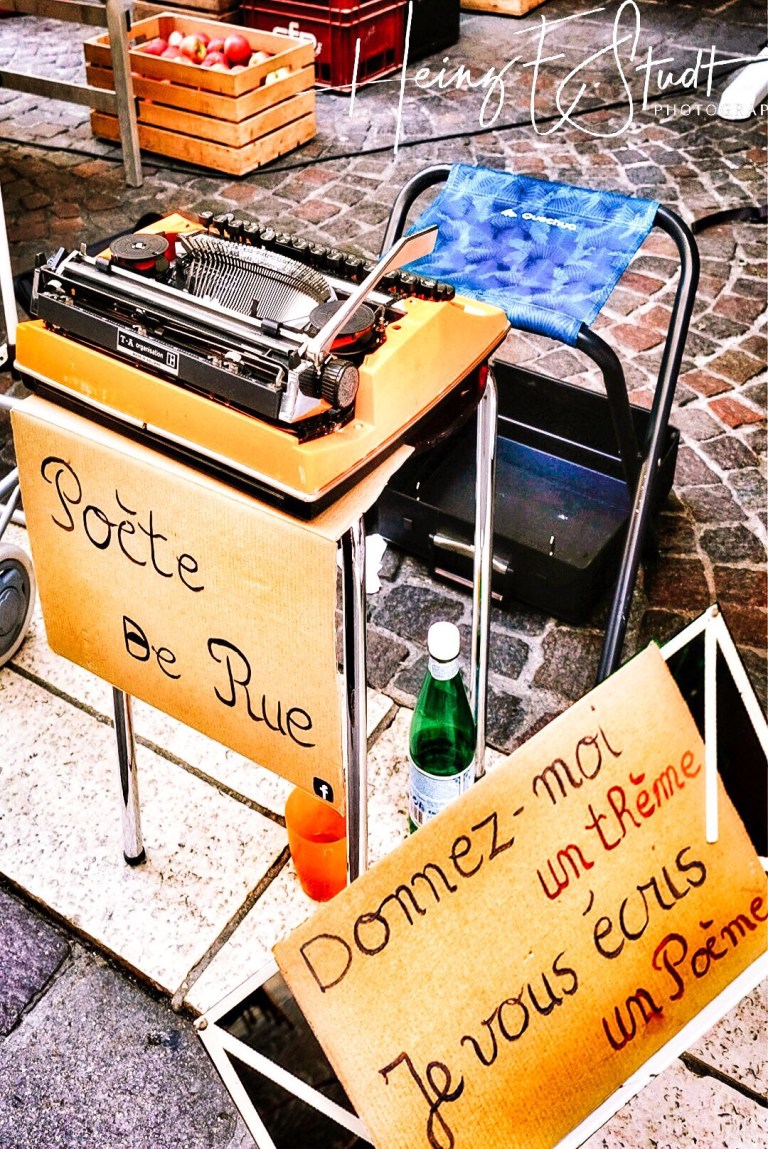 Heinz E. Studt
PHOTOGRAP
Quechua
T-A organisation
Poète
De Rue
f
Donnez-moi
un thème
Je vous écris
un Poème